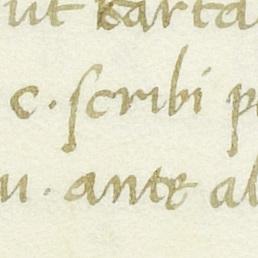 ut carta
c. scribi p
u. ante al